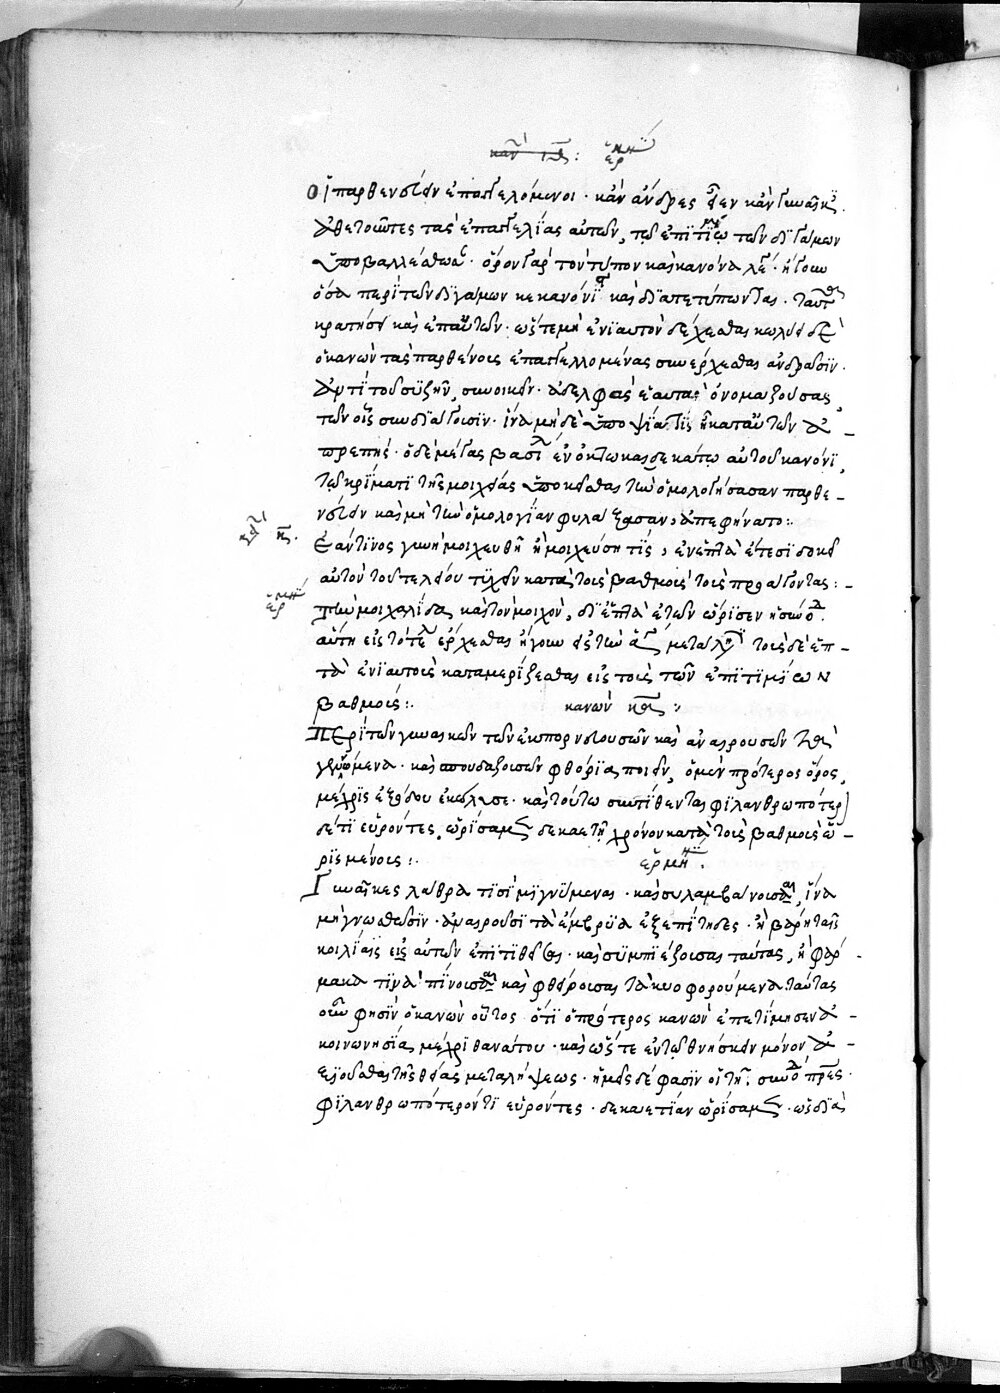 οἱ παρθενίαν ἐπαγγελόμενοι · κἂν ἄνδρες εἶεν κἂν γυναῖκες
ἀθετοῦντες τὰς ἐπαγγελίας αὐτῶν, τῷ ἐπιτιμίῳ τῶν διγάμων
ὑποβαλλέσθωσαν · ὅρον γὰρ τὸν τύπον καὶ κανόνα λέγει · ἤγουν
ὅσα περὶ τῶν διγάμων κεκανόνισται καὶ διατετύπωνται ·
κρατήσει καὶ ἐπ' αὐτῶν · ὥστε μὴ ἐνιαυτὸν δέχεσθαι κωλύει δὲ
ὁ κανὼν τὰς παρθένους ἐπαγγελλομένας συνέρχεσθαι ἀνδράσιν ·
ἀντὶ τοῦ συζῆν, συνοικεῖν · ἀδελφὰς ἑαυτὰς ὀνομαζούσας,
τῶν οἷς συνδιάγουσιν · ἵνα μηδὲ ὑποψία τις ᾖ κατ' αὐτῶν ἀ-
πρεπής · ὁ δὲ μέγας βασίλειος ἐν ὀκτωκαιδεκάτῳ αὐτοῦ κανόνι,
τῷ κρίματι τῆς μοιχείας ὑποκεῖσθαι τὴν ὁμολογήσασαν παρθε-
νείαν καὶ μὴ τὴν ὁμολογίαν φυλάξασαν, ἀπεφήνατο :·
Ἐάν τινος γυνὴ μοιχευθῇ ἢ μοιχεύσῃ τίς, ἐν ἑπτὰ ἔτεσι δοκεῖ
αὐτὸν τοῦ τελείου τυχεῖν κατὰ τοὺς βαθμοὺς τοὺς προάγοντας :·
τὴν μοιχαλίδα καὶ τὸν μοιχὸν, δι' ἑπτὰ ἐτῶν ὥρισεν ἡ σύνοδος
αὕτη εἰς τὸ τέλειον ἔρχεσθαι ἤγουν εἰς τὴν ἁγίαν μετάληψιν τοὺς δὲ ἑπ-
τὰ ἐνιαυτοὺς καταμερίζεσθαι εἰς τοὺς τῶν ἐπιτιμίων
βαθμούς :· κανὼν κα :·
Περὶ τῶν γυναικῶν τῶν ἐκπορνευουσῶν καὶ ἀναιρουσῶν τὰ
γεννώμενα · καὶ σπουδαζουσῶν φθόρια ποιεῖν, ὁ μὲν πρότερος ὅρος,
μέχρις ἐξόδου ἐκώλυσε · καὶ τούτῳ συντίθενται φιλανθρωπότερον
δέ τι εὑρόντες, ὡρίσαμεν δεκαετῆ χρόνον κατὰ τοὺς βαθμοὺς ὡ-
ρισμένους :· ἑρμη
Γυναῖκες λάθρα τισὶ μιγνύμεναι · καὶ συλλαμβάνουσαι, ἵνα
μὴ γνωσθῶσιν · ἀναιροῦσι τὰ ἔμβρυα ἐξεπίτηδες · ἢ βάρη ταῖς
κοιλίαις αὐτῶν ἐπιτιθεῖσαι · καὶ συμπιέζουσαι ταύτας, ἢ φάρ-
μακά τινα πίνουσαι καὶ φθείρουσαι τὰ κυοφορούμενα ταύτας
οὖν φησὶν ὁ κανὼν οὗτος ὅτι ὁ πρότερος κανὼν ἐπετίμησεν ἀ-
κοινωνησίᾳ μέχρι θανάτου · καὶ ὥστε ἐν τῷ θνήσκειν μόνον ἀ-
ξιοῦσθαι τῆς θείας μεταλήψεως · ἡμεῖς δέ φασιν οἱ τῆς συνόδου πατέρες ·
φιλανθρωπότερόν τι εὑρόντες · δεκαετίαν ὡρίσαμεν · ὡς διὰ